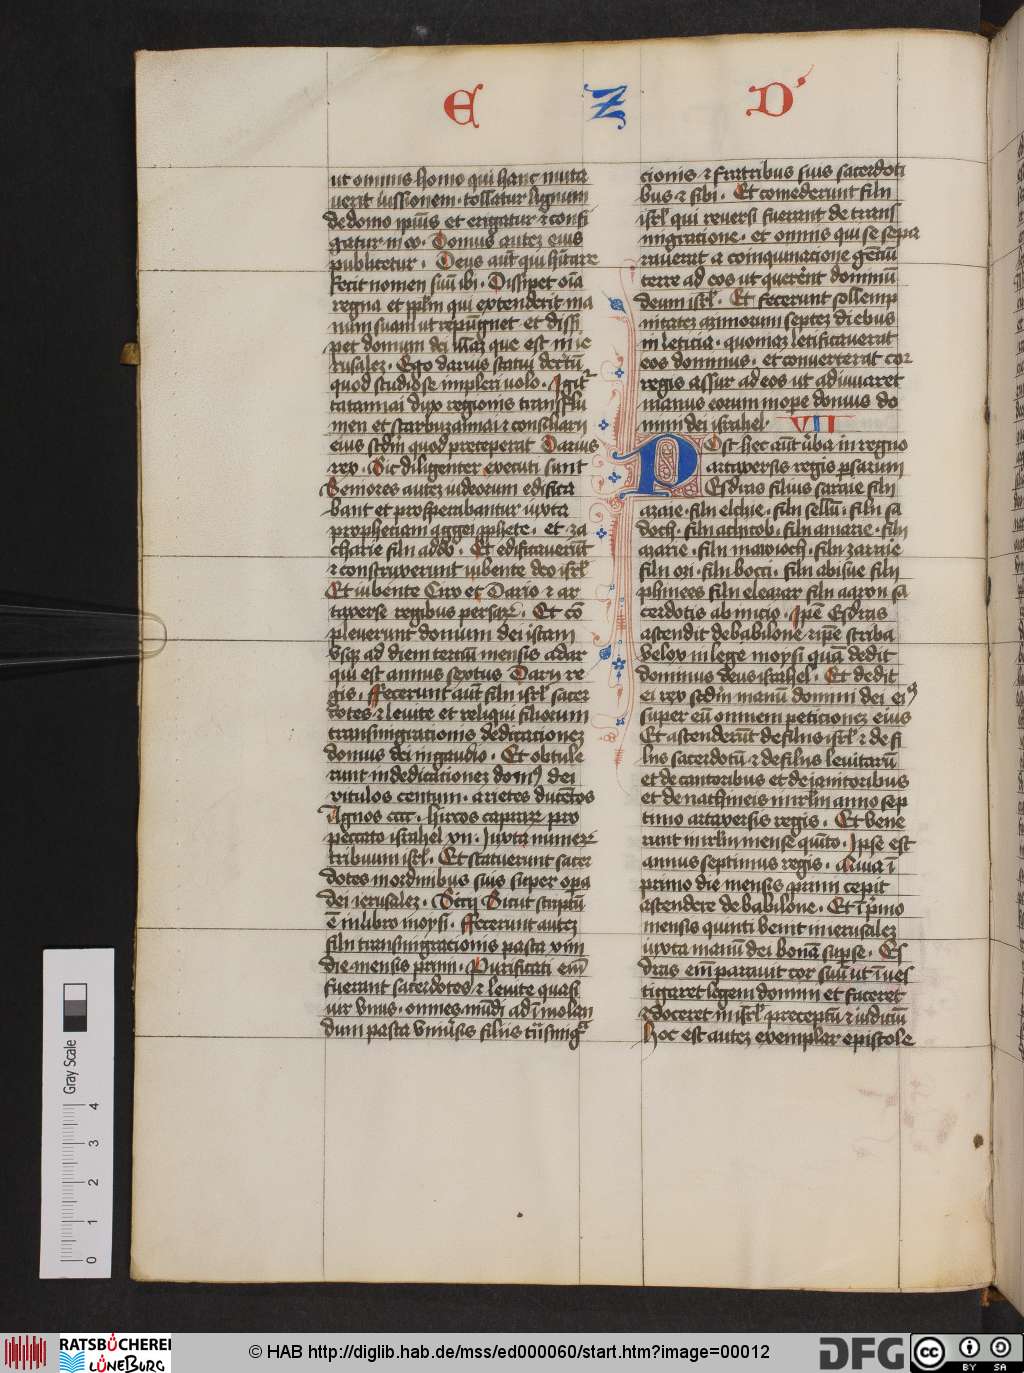 E Z D'
ut omnis homo qui hanc muta
verit iussionem · tollatur lignum
de domo ipius et erigatur ⁊ confi
gatur in eo · Domus autez eius
publicetur · Deus aut̄ qui h̄itare
fecit nomen suū ibi · Dissipet oīa
regna et pplm qui extenderit ma
num suam ut repūgnet et dissi
pet domum dei illaz que est in ie
rusalez · Ego darius statui decretū
quod studiose impleri volo · Igit᷑
tatannai dux regionis transflu
men et starburzannai et consiliarii
eius scdm̄ quod preceperat Darius
rex · Sic diligenter executi sunt
Seniores autez iudeorum edifica
bant et prosperabantur iuxta
prophetiam aggei pphete · et za
charie filii addo · Et edificaverūt
⁊ construxerunt iubente deo isrl̄
Et iubente Ciro et Dario ⁊ ar
taxerse regibus persaꝝ · Et cō
pleverunt domum dei istam
Usqꝫ ad diem terciū mensis adar
qui est annus sextus Darii re
gis · Fecerunt aūt filii isrl̄ sacer
dotes ⁊ levite et reliqui filiorum
transmigrationis dedicationez
domus dei in gaudio · Et obtule
runt in dedicationez domꝰ dei
vitulos centum · arietes ducētos
Agnos cccc · hircos capraꝝ pro
peccato israhel xii · Iuxta numeꝝ
tribuum isrl̄ · Et statuerunt sacer
dotes in ordinibus suis super opa
dei ierusalez · Sicut scriptū
ē in libro moysi · Fecerunt autez
filii transmigracionis pasca xiiii
die mensis primi · Purificati eīn
fuerant sacerdotes ⁊ levite quasi
vir unus · omnes mūdi ad īmolan
dum pasca univ̄sis filiis trāsmigᵃ
cionis ⁊ fratribus suis sacerdoti
bus ⁊ sibi · Et comederunt filii
isrl̄ qui reversi fuerant de trans
migratione · et omnis qui se sepa
raverat a coinquinacione gēciū
terre ad eos ut quererēt dominū
deum isrl̄ · Et fecerunt sollemp
nitatez azimorum septez diebus
in leticia · quoniaz letificaverat
eos dominus · et converterat cor
regis assur ad eos ut adiuvaret
manus eorum in ope domus do
mini dei israhel · VII
Post hec aūt v̄ba in regno
artaxersis regis psarum
Esdras filius saraie filii
azarie · filii elchie · filii sellū · filii sa
doch · filii achitob · filii amarie · filii
azarie · filii maraioth · filii zarraie
filii ozi · filii bocci · filii abisue filii
phinees filii eleazar filii aaron sa
cerdotis ab inicio · Ipē Esdras
ascendit de babilone ⁊ ipē scriba
velox in lege moysi quā dedit
dominus deus israhel · Et dedit
ei rex scdm̄ manū domini dei eiꝰ
super eū omnem peticionez eius
Et ascenderūt de filiis isrl̄ ⁊ de fi
liis sacerdotū ⁊ de filiis levitarū
et de cantoribus et de ianitoribus
et de nathineis in irlm̄ anno sep
timo artaxersis regis · Et vene
runt in irlm̄ mense quīto · Ipse est
annus septimus regis · Quia ī
primo die mensis primi cepit
ascendere de babilone · Et ī p̄mo
mensis quinti venit in ierusalez
iuxta manū dei bonā sup se · Es
dras eīn paravit cor suū ut īves
tigaret legem domini et faceret
⁊ doceret in isrl̄ preceptū ⁊ iudiciū
Hoc est autez exemplar epistole
Gray Scale
0 1 2 3 4
RATSBÜCHEREI
LÜNEBURG
© HAB http://diglib.hab.de/mss/ed000060/start.htm?image=00012
DFG
cc BY SA